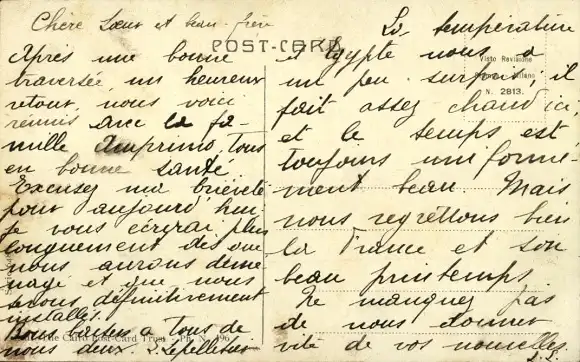 Chère Sœur et beau-frère
POST-CARD
Après une bonne
traversée, un heureux
retour, nous voici
réunis avec la fa-
mille Amprimo, tous
en bonne santé.
Excusez ma brièveté
pour aujourd'hui,
je vous écrirai plus
longuement dès que
nous aurons démé-
nagé et que nous
serons définitivement
installés.
Bons baisers à tous de
nous deux. L. Lepelletier
The Cairo Post-Card Trust - Ph. N. 196
La température
d'Egypte nous a
un peu surpris, il
fait assez chaud ici,
et le temps est
toujours uniformé-
ment beau. Mais
nous regrettons bien
la France et son
beau printemps.
Ne manquez pas
de nous donner
vite de vos nouvelles.
Visto Revisione
Milano
N. 2813.